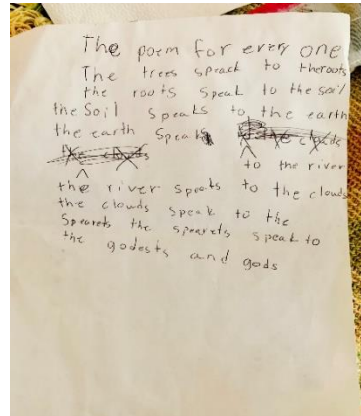 The poem for every one
The trees speack to theroots
the roots speak to the soil
the Soil speaks to the earth
the earth speaks to the clouds
the clouds
to the river
the river speaks to the clouds
the clouds speak to the
Spearets the spearets speak to
the godests and gods